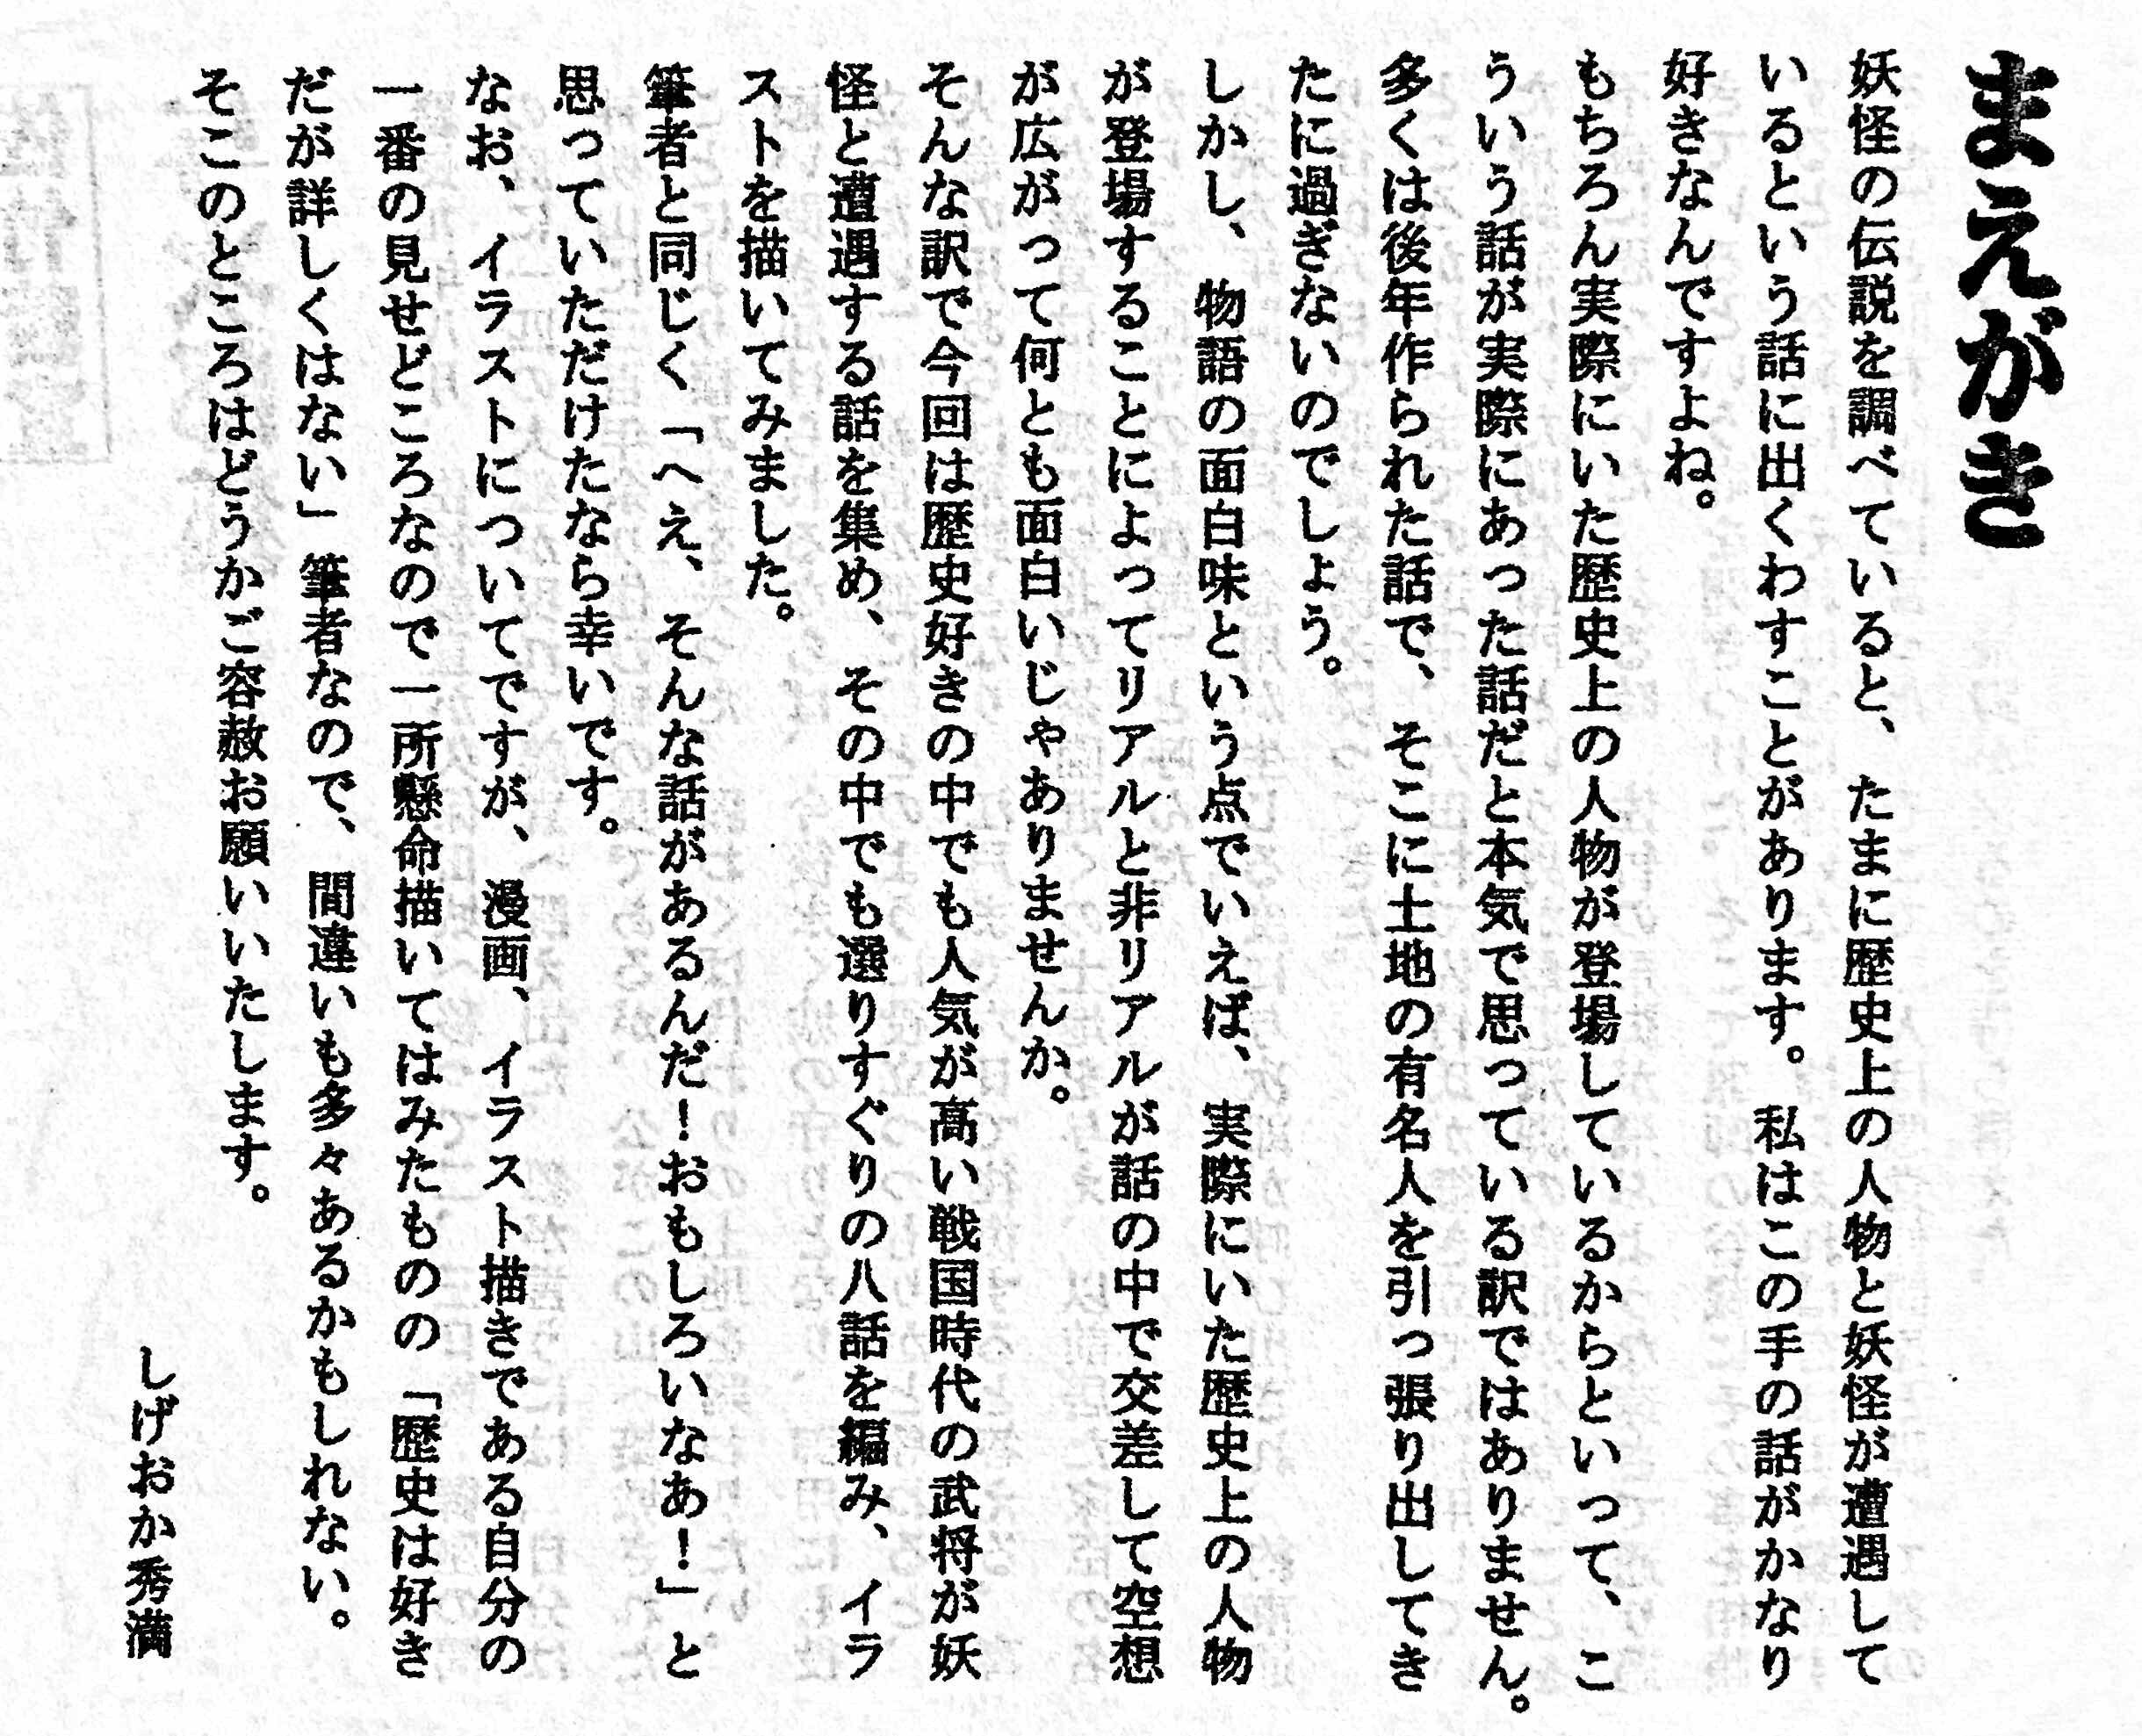 まえがき
妖怪の伝説を調べていると、たまに歴史上の人物と妖怪が遭遇して
いるという話に出くわすことがあります。私はこの手の話がかなり
好きなんですよね。
もちろん実際にいた歴史上の人物が登場しているからといって、こ
ういう話が実際にあった話だと本気で思っている訳ではありません。
多くは後年作られた話で、そこに土地の有名人を引っ張り出してき
たに過ぎないのでしょう。
しかし、物語の面白味という点でいえば、実際にいた歴史上の人物
が登場することによってリアルと非リアルが話の中で交差して空想
が広がって何とも面白いじゃありませんか。
そんな訳で今回は歴史好きの中でも人気が高い戦国時代の武将が妖
怪と遭遇する話を集め、その中でも選りすぐりの八話を編み、イラ
ストを描いてみました。
筆者と同じく「へえ、そんな話があるんだ！おもしろいなあ！」と
思っていただけたなら幸いです。
なお、イラストについてですが、漫画、イラスト描きである自分の
一番の見せどころなので一所懸命描いてはみたものの「歴史は好き
だが詳しくはない」筆者なので、間違いも多々あるかもしれない。
そこのところはどうかご容赦お願いいたします。
しげおか秀満